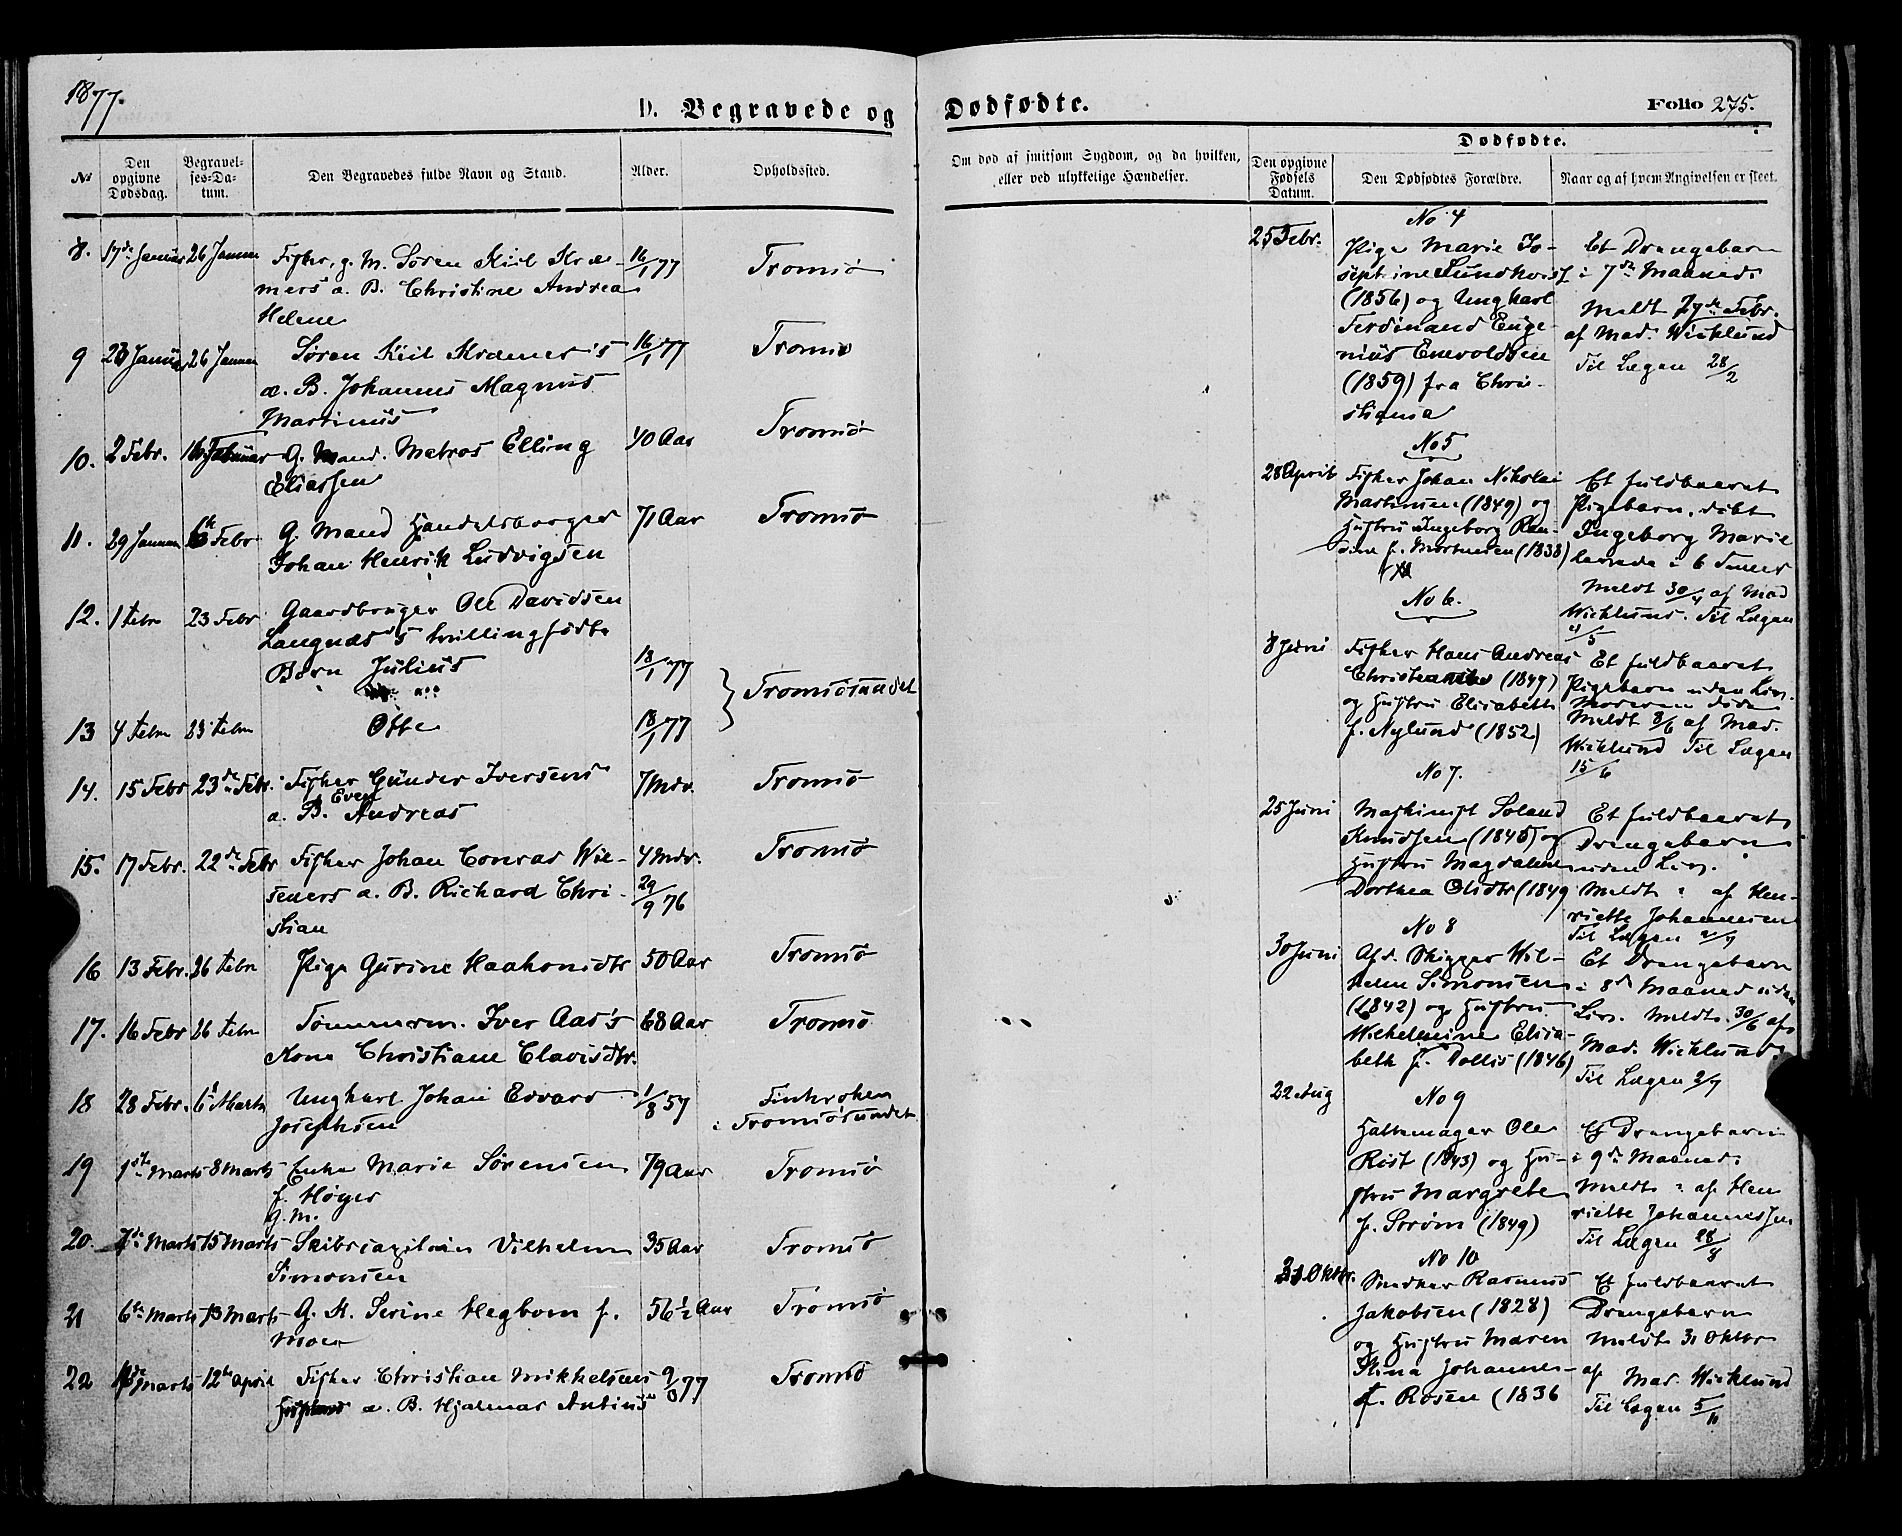 1877.
D. Begravede og Dødfødte.
Folio 275.
No
Den opgivne Dødsdag.
Begravelses-Datum.
Den Begravedes fulde Navn og Stand.
Alder.
Opholdssted.
Om død af smitsom Sygdom, og da hvilken,
eller ved ulykkelige Hændelser.
Dødfødte.
Den opgivne Fødsels Datum.
Den Dødfødtes Forældre.
Naar og af hvem Angivelsen er skeet.
8. 17de Januar 26 Januar Fisker, g. M. Søren Kiil Kræ- 16/1 77 Tromsø
mers æ. B. Christine Andrea
Helene
9 23 Januar 26 Januar Søren Kiil Kræmer's 16/1 77 Tromsø
æ. B. Johannes Magnus
Martinus
10. 2 Febr. Februar G. Mand. Matros Elling 40 Aar Tromsø
Eliassen
11. 29 Januar Febr G. Mand Handelsborger 71 Aar Tromsø
Johan Henrik Ludvigsen
12. 1 Febr 23 Febr Gaardbruger Ole Davidsen
Langnæs's tvillingfødte
Børn Julius 18/1 77
Tromsøsundet
13 4 Febr 23 Febr Otte 18/1 77
14. 15 Febr 23de Febr. Fisker Gunder Iversens 7 Mdr. Tromsø
a. B. Even Andreas
15. 17 Febr. 22de Febr Fisker Johan Conrad Wie- 4 Mdr. Tromsø
seners a. B. Richard Chri- 29/9 76
stian
16 13 Febr. 26 Febr Pige Gurine Haakonsdtr 50 Aar Tromsø
17. 16 Febr 26 Febr Tømmerm. Iver Aas's 68 Aar Tromsø
Kone Christiane Clavisdtr.
18 28 Febr. 6 Marts Ungkarl Johan Edvard 1/8 57 Finkroken
Josephsen i Tromsøsundet
19 1ste Marts 8 Marts Enke Marie Sørensen 79 Aar Tromsø
f. Høyer
g. M.
20. 7de Marts 15 Marts Skibscapitain Vilhelm 35 Aar Tromsø
Simonsen
21 6te Marts 13 Marts G. K. Serine Hegbom f. 56 1/2 Aar Tromsø
Moe
22 Marts 12te April Fisker Christian Mikkelsens 77 Tromsø
æ. B. Hjalmar Antius
No 4
25 Febr. Pige Marie Jo-
sephine Lundkvist
(1856) og Ungkarl
Ferdinand Euge-
nius Enevoldsen
(1859) fra Chris-
tiania
Et Drengebarn
i 7de Maaned.
Meldt 27de Febr.
af Mad. Wicklund
Til Lægen 28/2
No 5
28 April Fisker Johan Nikolai
Martinsen (1849) og
Hustru Ingeborg
f. Mortensen (1838)
Et fuldbaaret
Pigebarn, døbt
Ingeborg Marie
levede i 6 Timer
Meldt 30/4 af Mad
Wicklund. Til Lægen
4/5
No 6.
8 Juni Fisker Hans Andreas
(1849)
og Hustru Elisabeth
f. Nylund (1852)
Et fuldbaaret
Pigebarn uden Liv.
Moderen døde
Meldt 8/6 af Mad.
Wicklund Til Lægen
15/6
No 7.
25 Juni Maskinist
Knudsen og
Hustru Magdalene
Dorthea Olsdtr (1849
Et fuldbaaret
Drengebarn
uden Liv.
Meldt af Hen-
riette Johannesen
Til Lægen
No 8
30 Juni Afd. Skipper Wil-
helm Simonsen
(1842) og Hustru
Wilhelmine Elisa-
beth f. (1846)
Et Drengebarn
i 8de Maaned uden
Liv. Meldt 30/6 af
Mad. Wicklund og
Til Lægen 2/7
No 9
22 Aug Hattemager Ole
Röst (1843) og Hu-
stru Margrete
f. Strøm (1849)
Et Drengebarn
i 9de Maaned.
Meldt af Hen
riette Johannessen
Til Lægen 28/8
No 10
31 Oktbr. Snedker Rasmus
Jakobsen (1828)
og Hustru Maren
Stina Johannes-
f. Rosen (1836
Et fuldbaaret
Drengebarn
Meldt 31 Oktbr
af Mad. Wicklund
Til Lægen 5/11